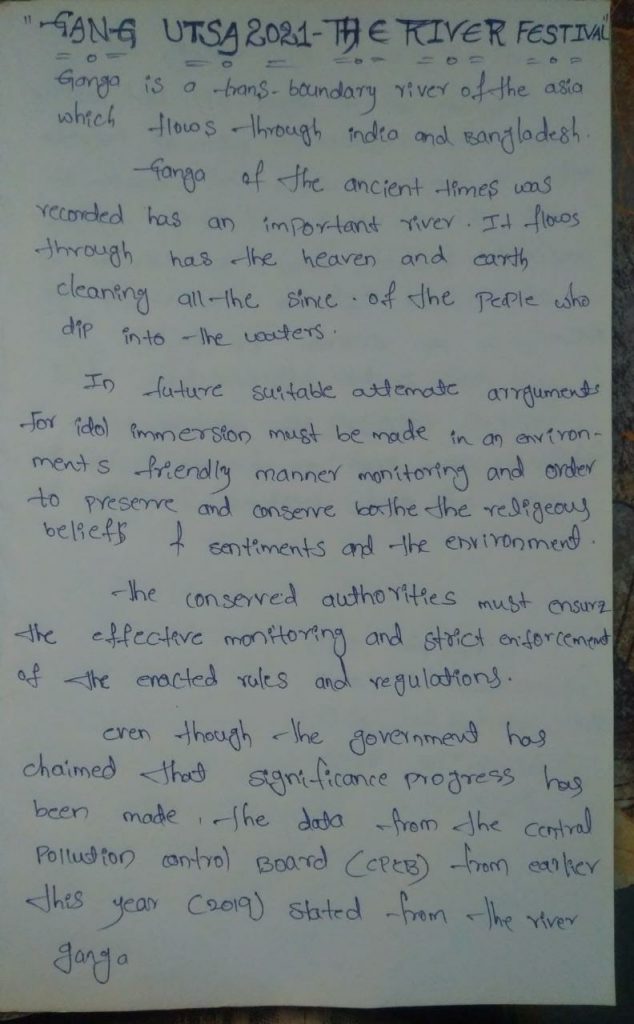 "GANG UTSA 2021-THE RIVER FESTIVAL"
Ganga is a trans-boundary river of the asia
which flows through india and Bangladesh.
Ganga of the ancient times was
recorded has an important river. It flows
through has the heaven and earth
cleaning all the since. of the people who
dip into the waters.
In future suitable attemate arrguments
for idol immersion must be made in an environ-
ments friendly manner monitoring and order
to preserve and conserve bothe the religeous
beliefs & sentiments and the environment.
the conserved authorities must ensure
the effective monitoring and strict enforcement
of the enacted rules and regulations.
even though the government has
chaimed that significance progress has
been made, the data from the central
Pollution control Board (CPCB) from earlier
this year (2019) stated from the river
ganga